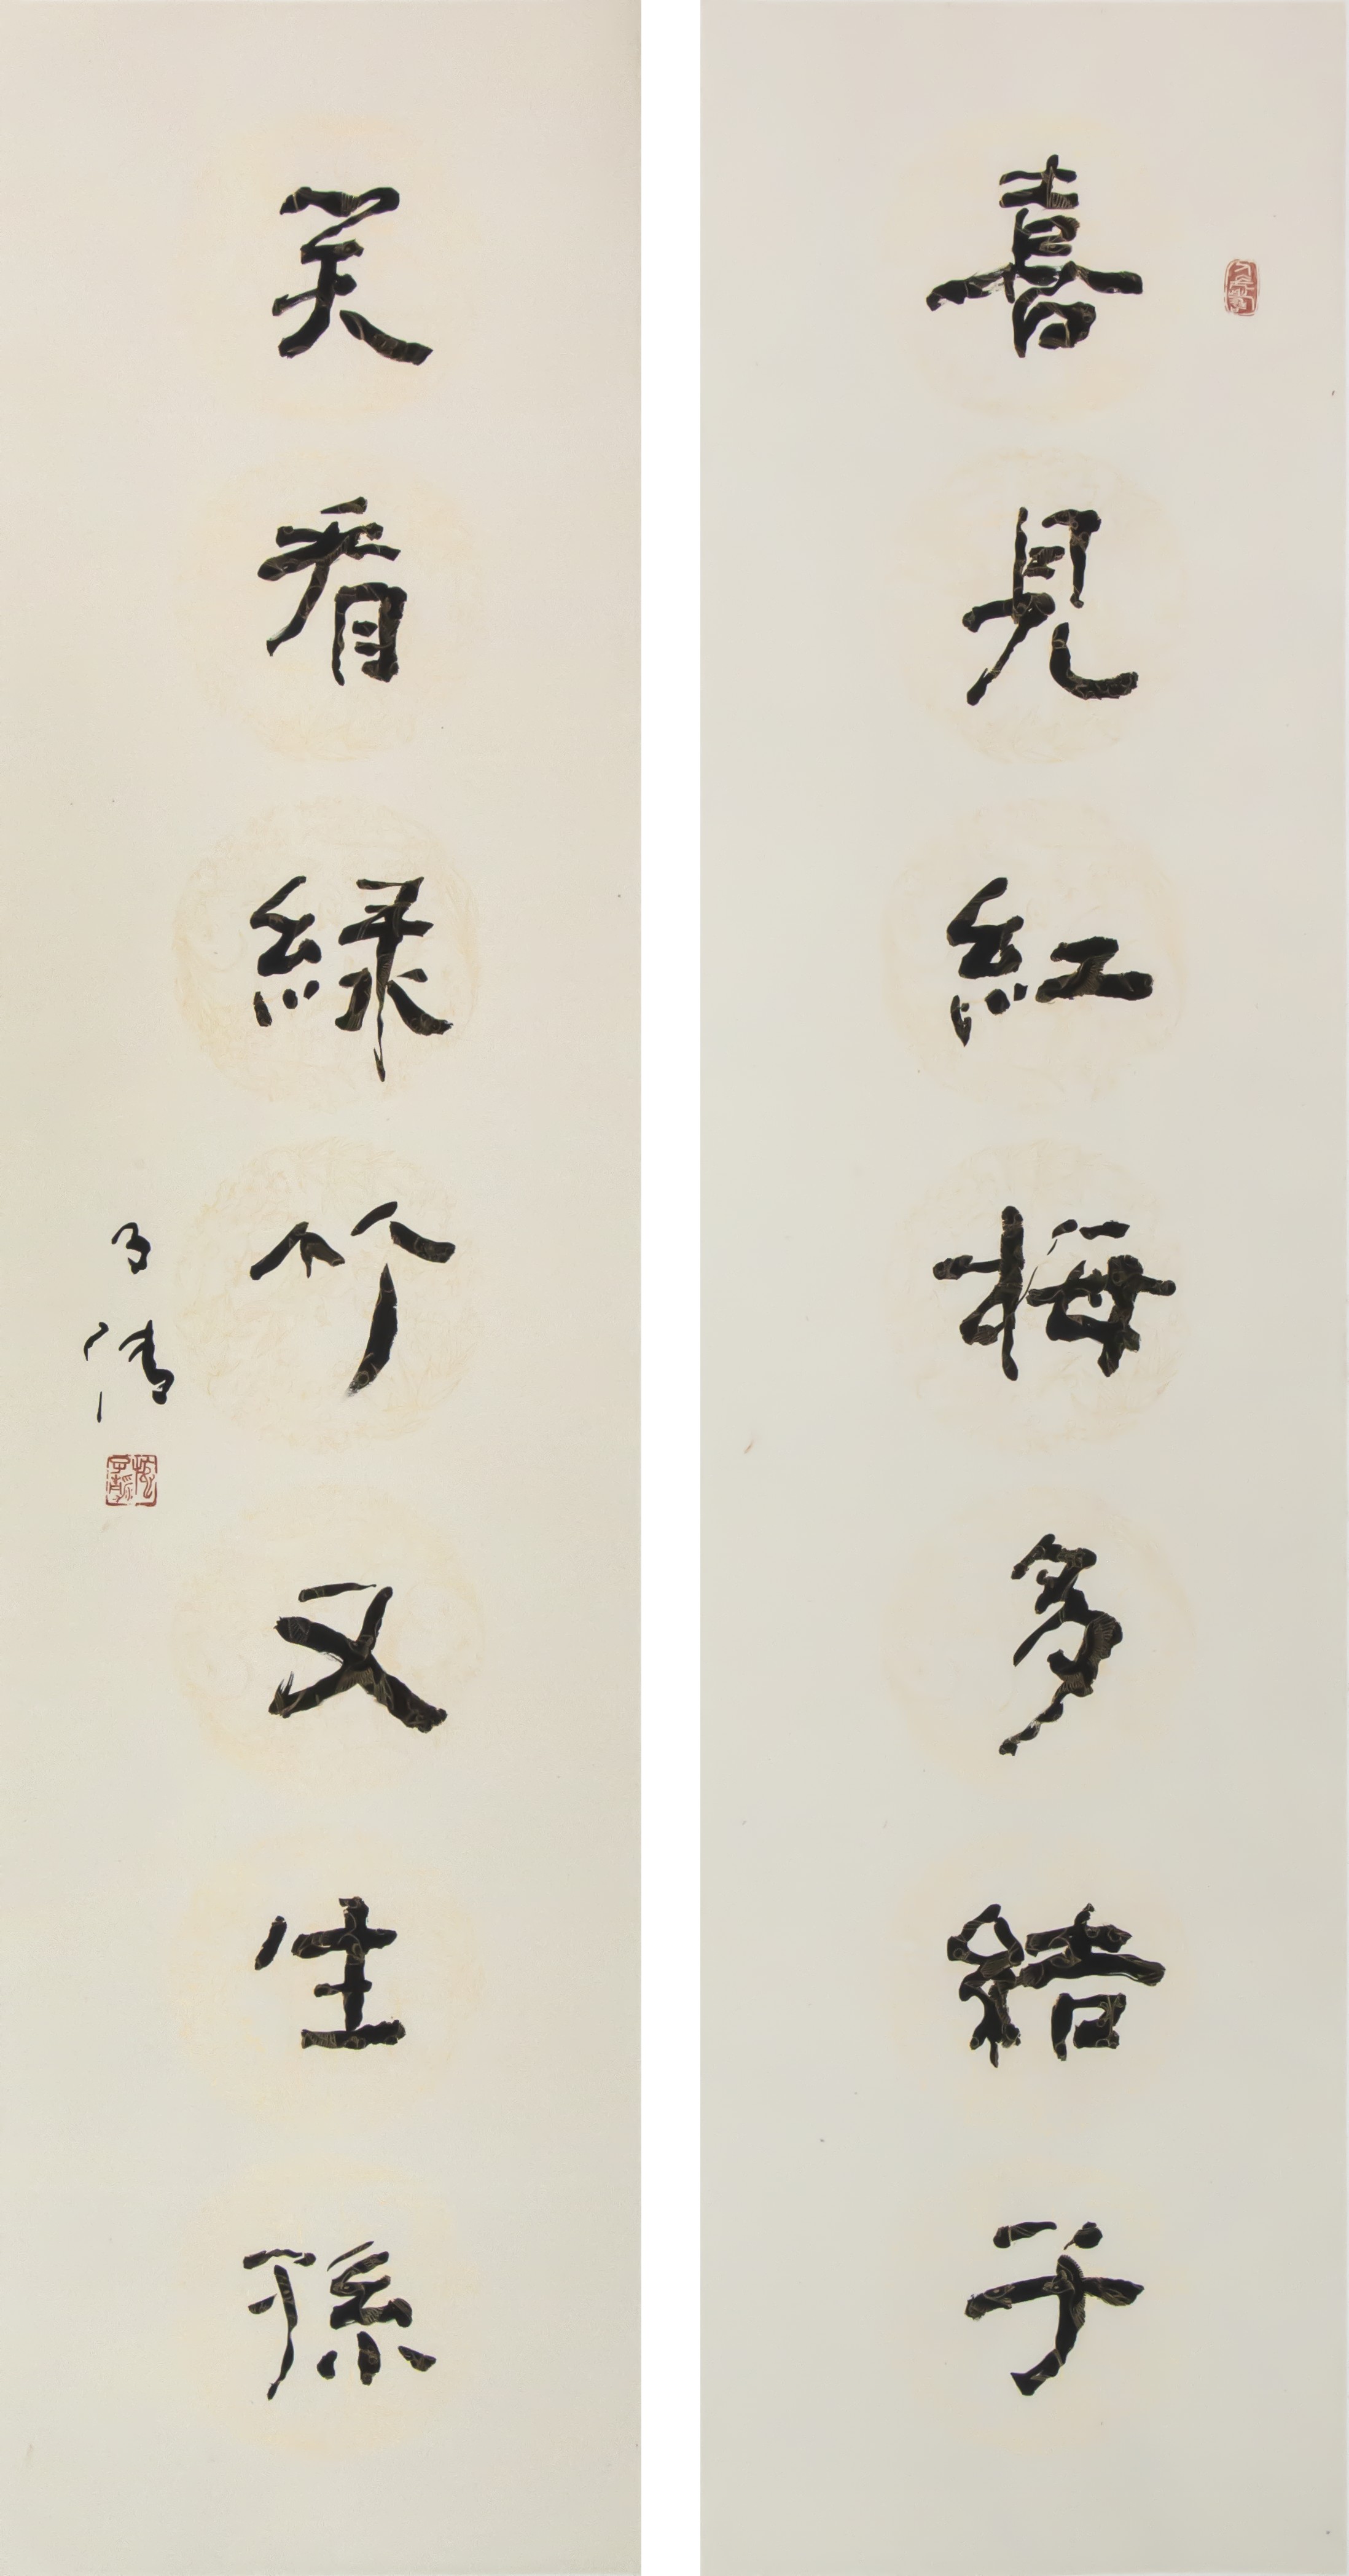 喜見紅梅多結子
笑看緑竹又生孫
子清